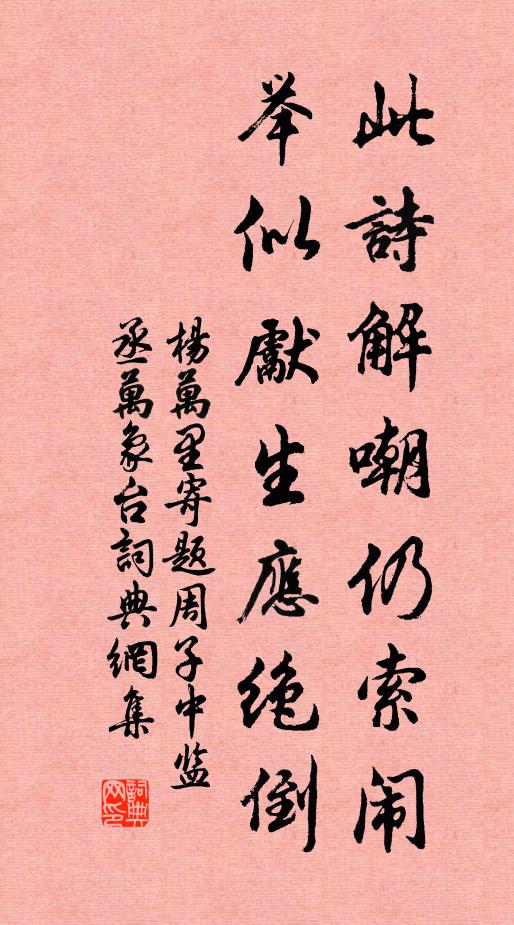 此詩解嘲仍索闹
举似獻生應绝倒
楊萬里寄题周子中监
丞萬象台詞典網集
詞典网印